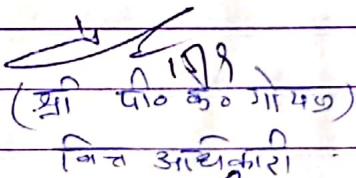 (श्री पी० के० गोयल)
वित्त अधिकारी